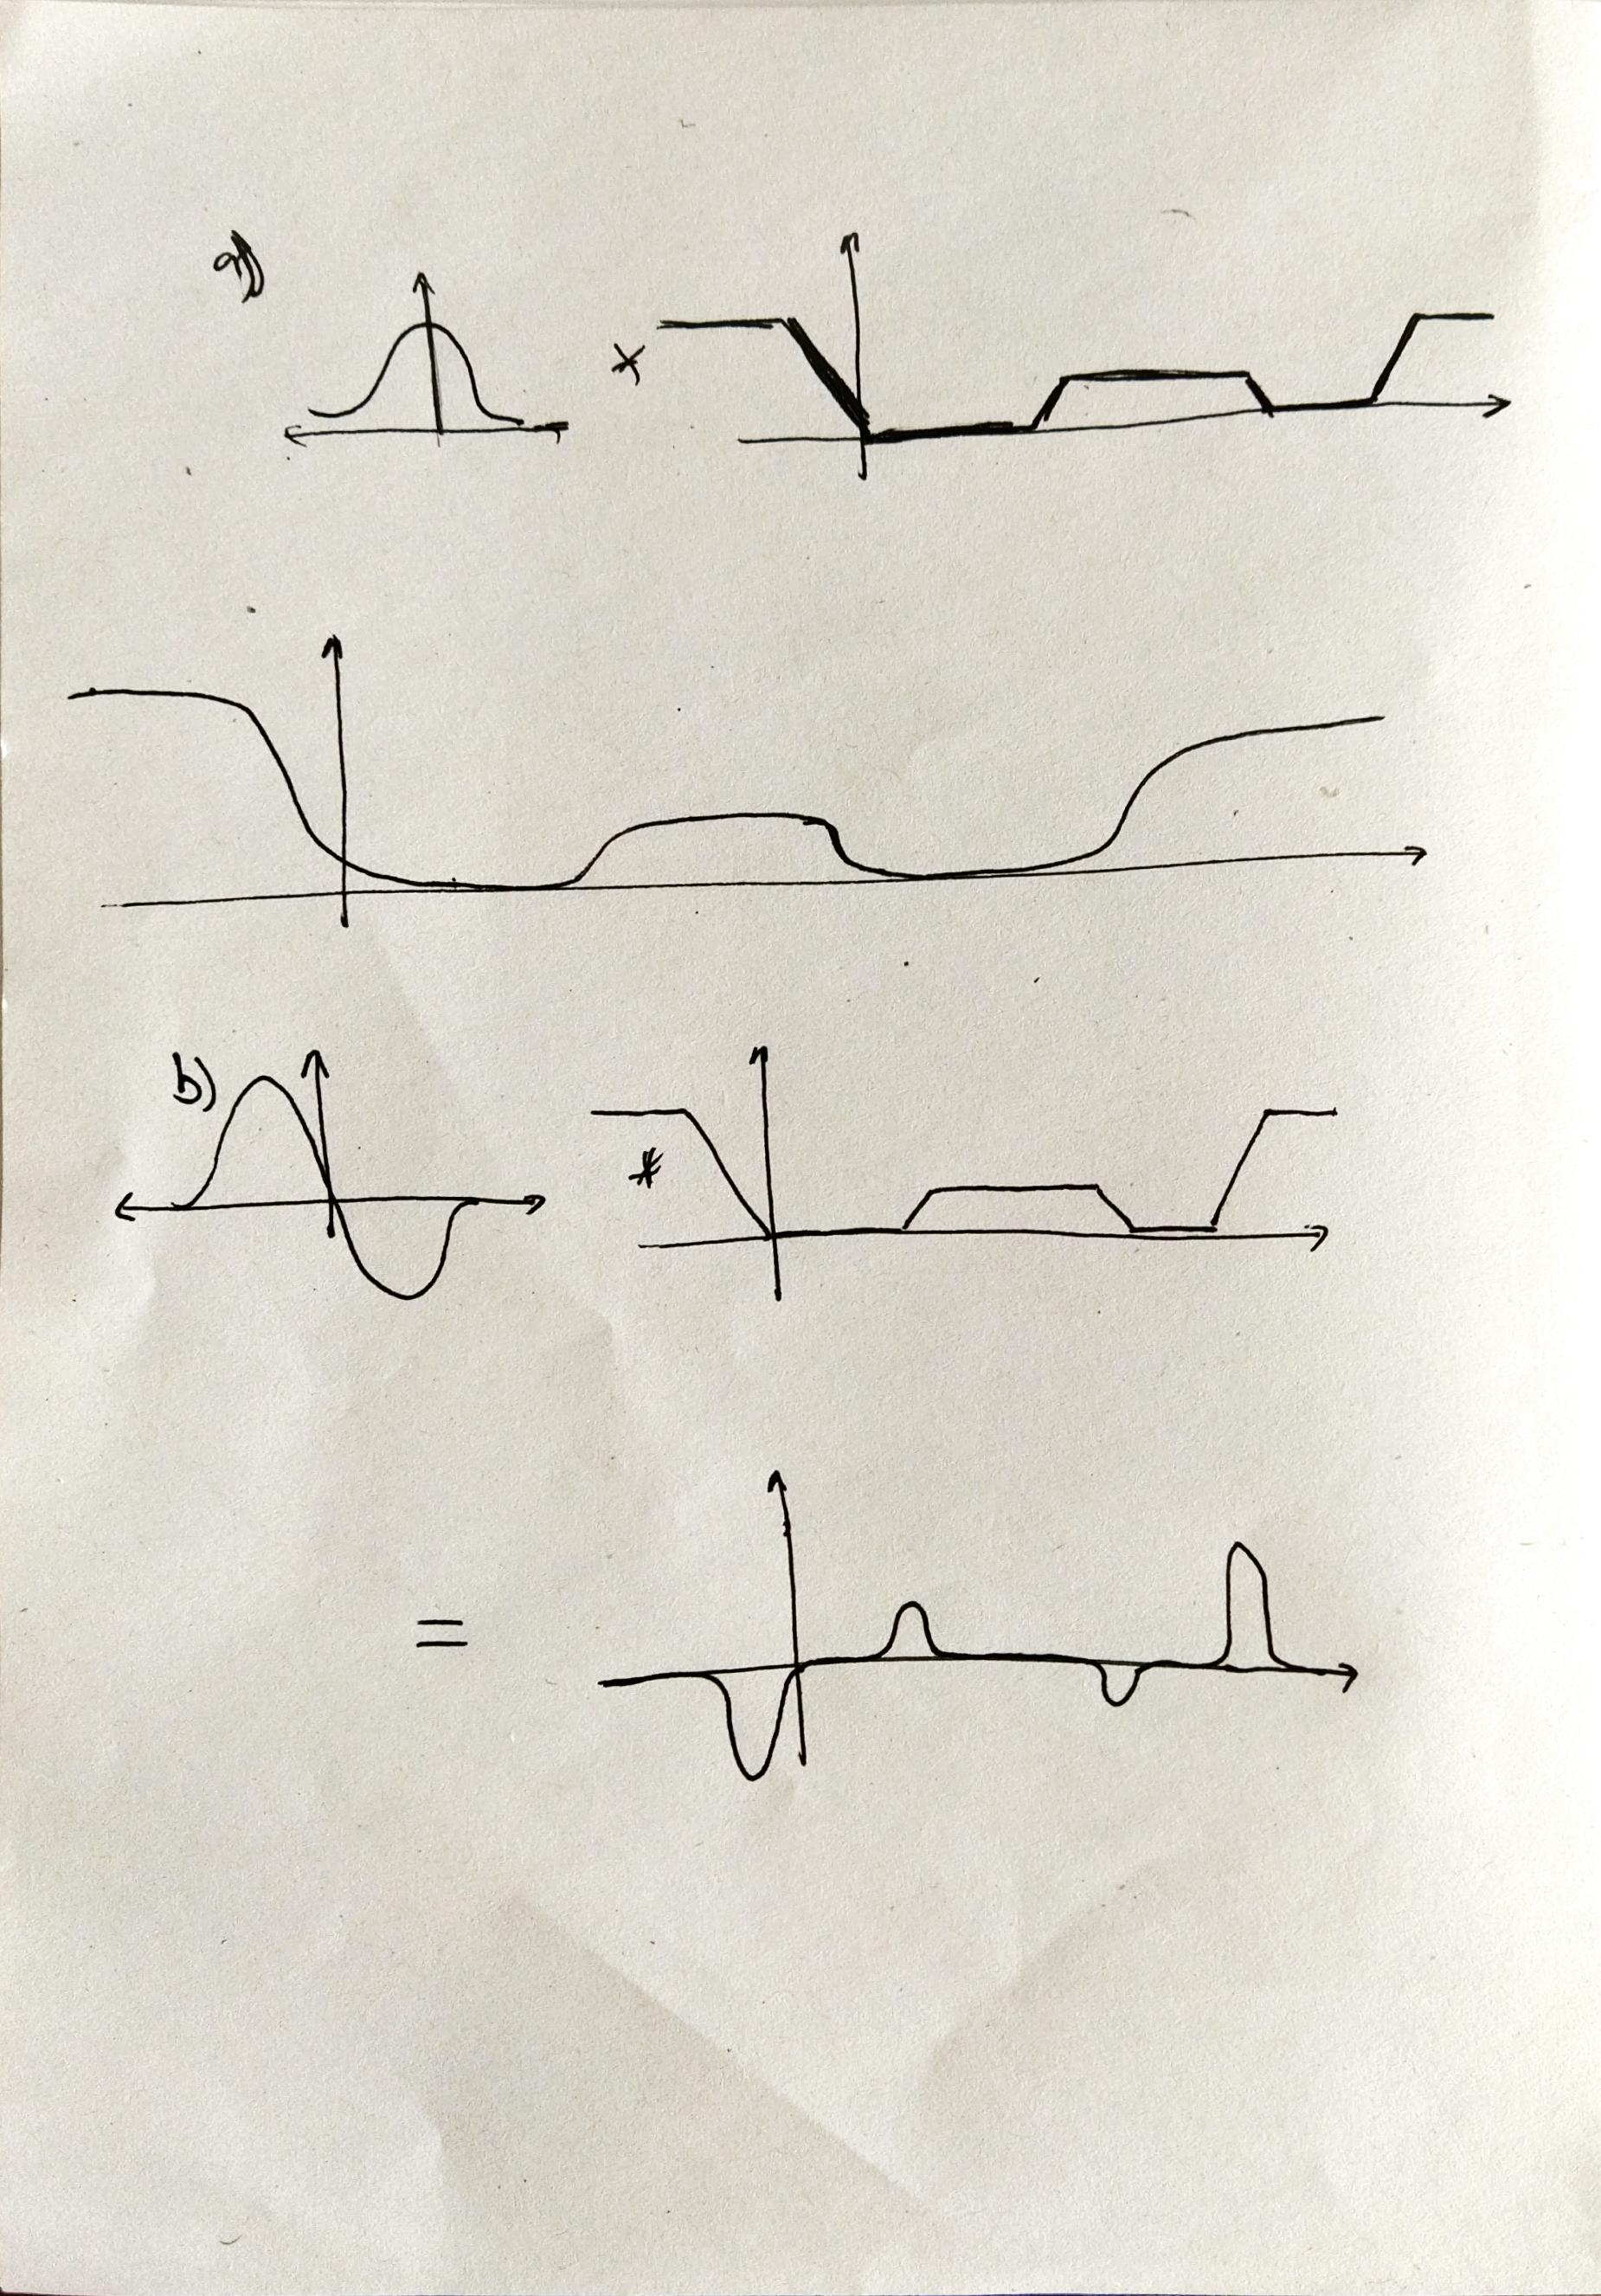 a)
*
b)
*
=